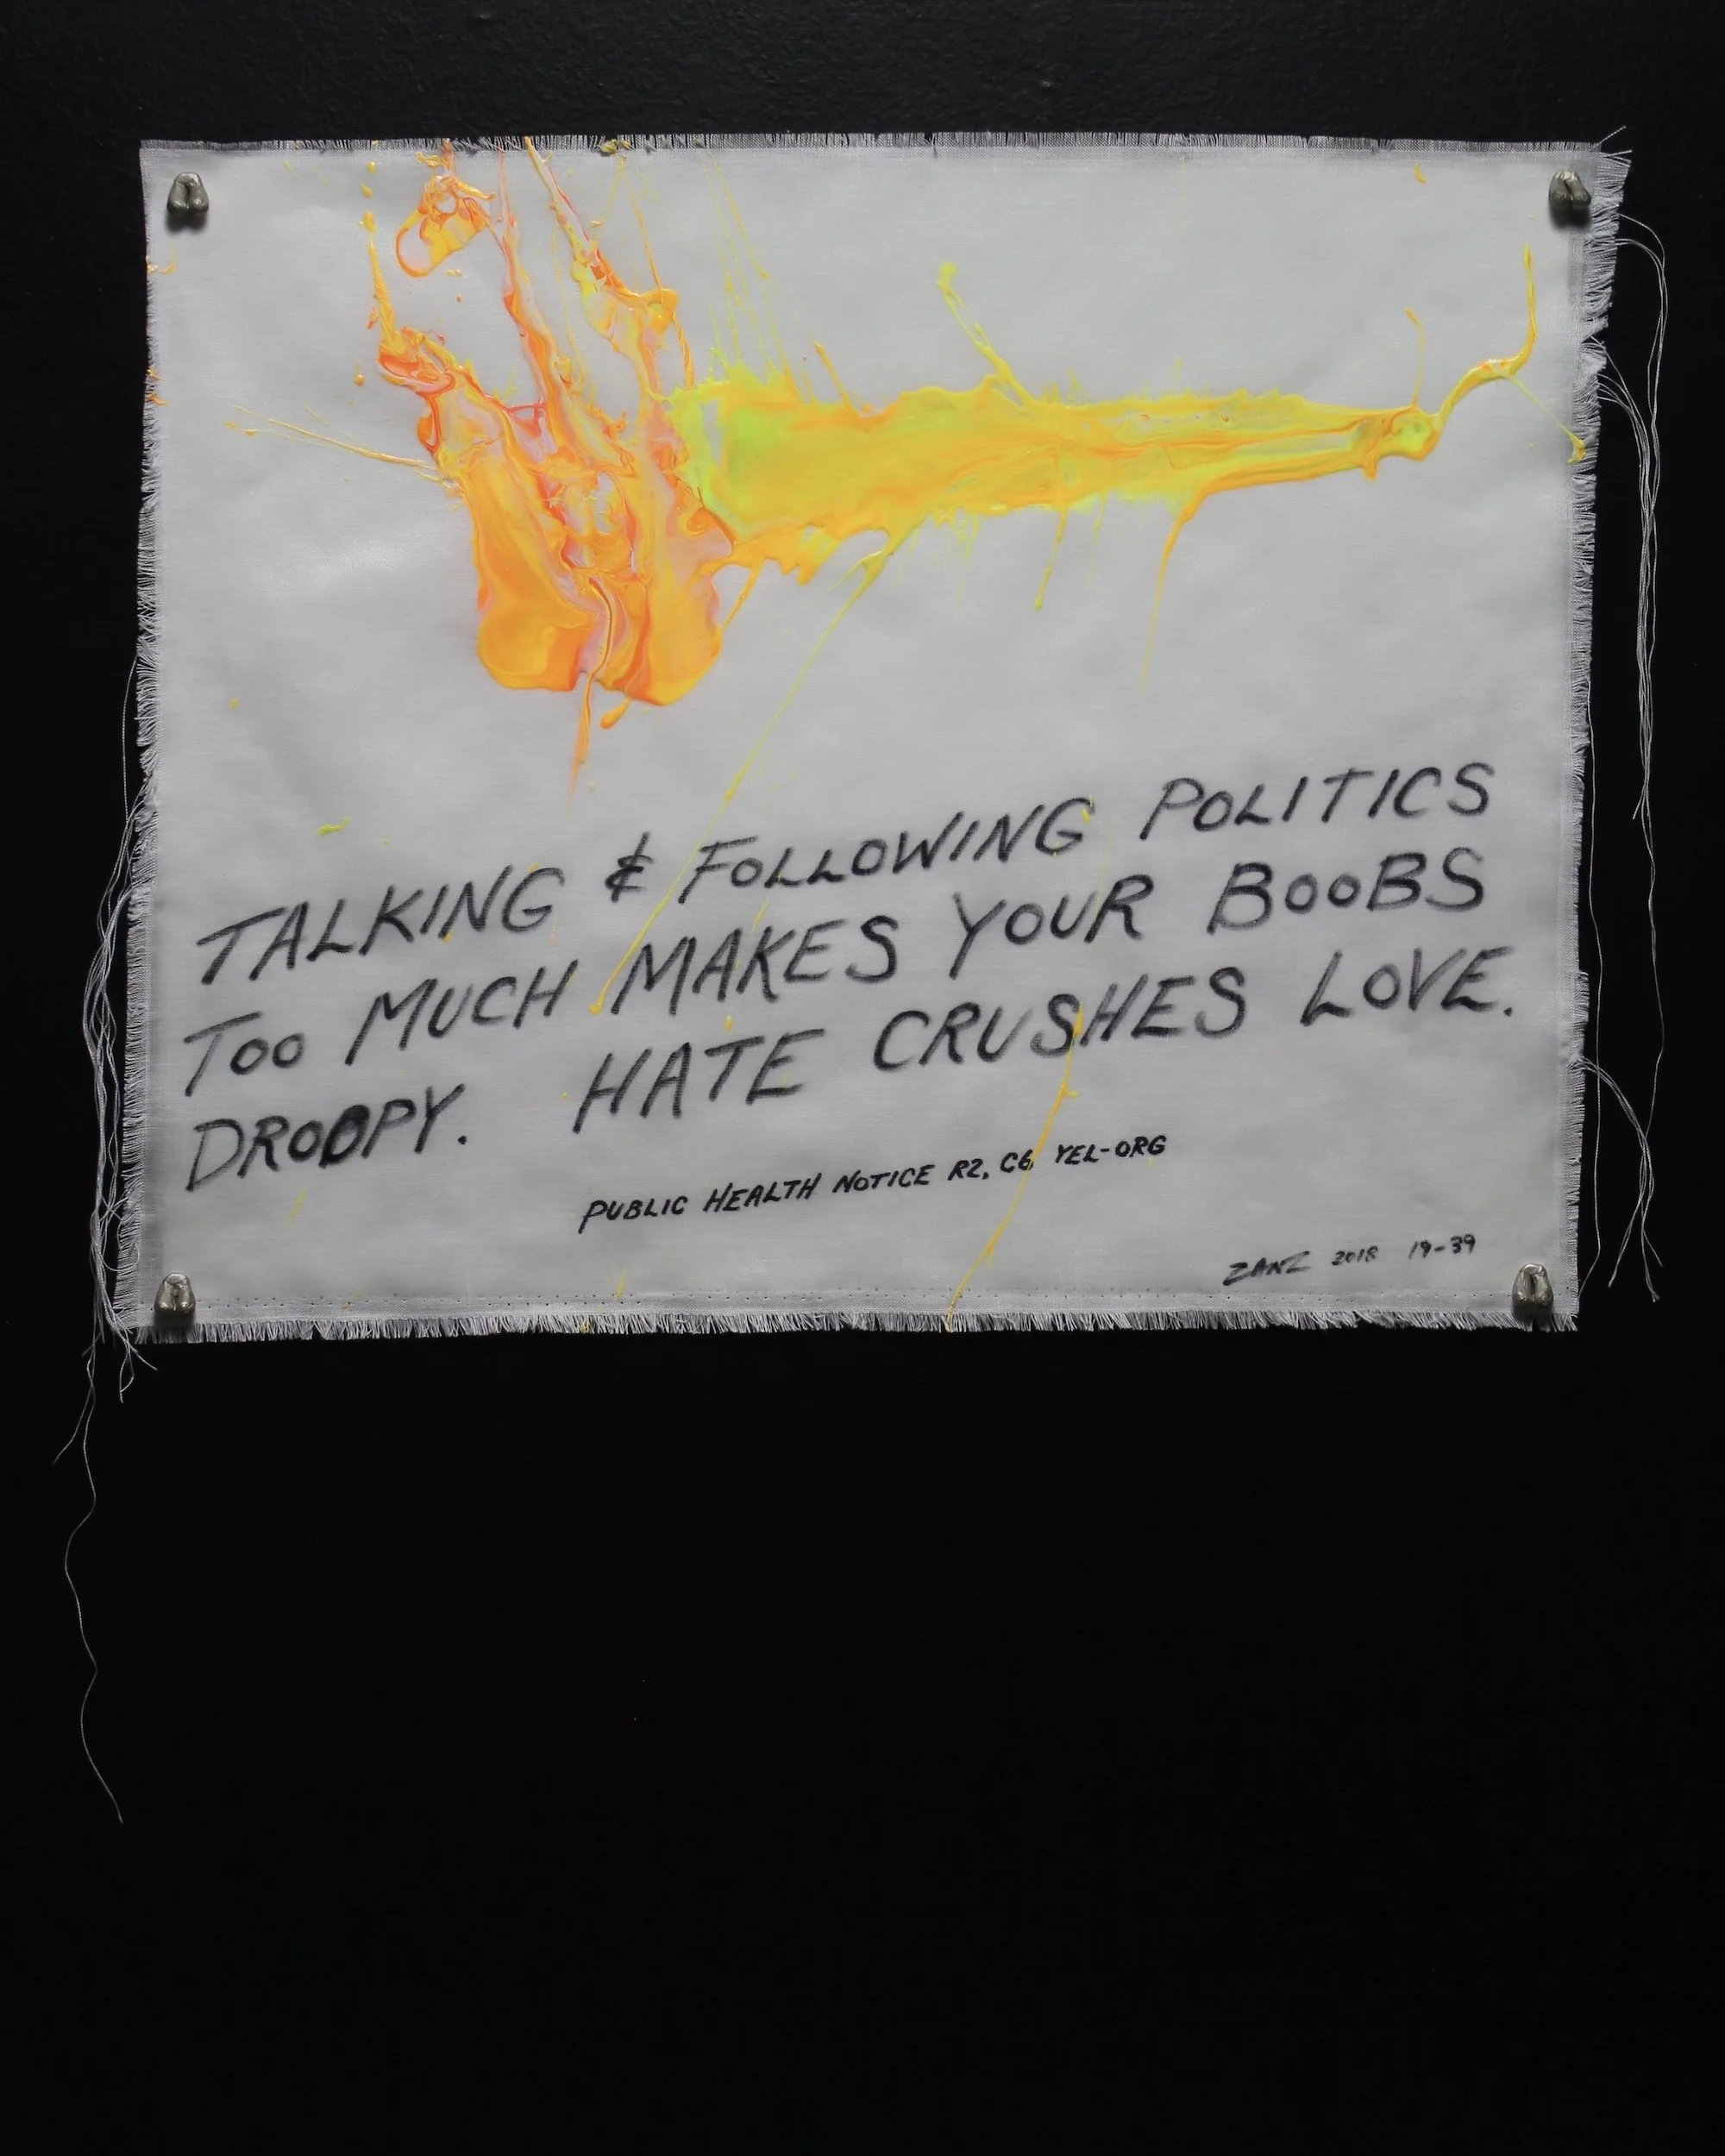 TALKING & FOLLOWING POLITICS
TOO MUCH MAKES YOUR BOOBS
DROOPY. HATE CRUSHES LOVE.
PUBLIC HEALTH NOTICE R2, C6 YEL-ORG
ZANZ 2018 19-39